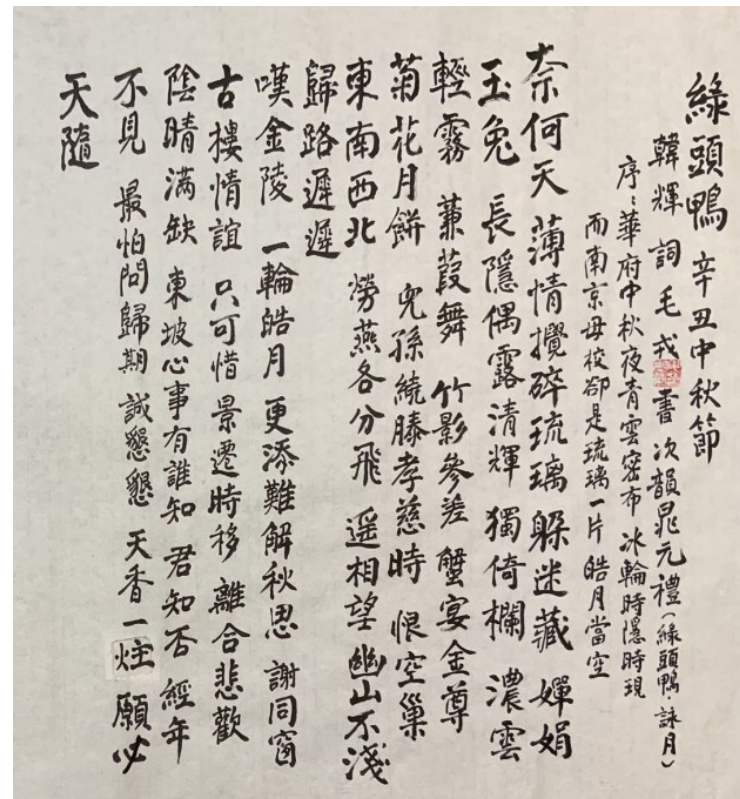 綠頭鴨 辛丑中秋節
韓輝 詞 毛戎 書 次韻晁元禮(綠頭鴨·詠月)
序：華府中秋夜青雲密布 冰輪時隱時現
而南京母校卻是琉璃一片 皓月當空
奈何天 薄情攪碎琉璃 躲迷藏 嬋娟
玉兔 長隱偶露清輝 獨倚欄 濃雲
輕霧 蒹葭舞 竹影參差 蟹宴金尊
菊花月餅 兒孫繞膝孝慈時 恨空巢
東南西北 勞燕各分飛 遥相望 幽山不淺
歸路遲遲
嘆金陵 一輪皓月 更添難解秋思 謝同窗
古樓情誼 只可惜 景遷時移 離合悲歡
陰晴滿缺 東坡心事有誰知 君知否 經年
不見 最怕問歸期 誠懇懇 天香一炷 願必
天隨